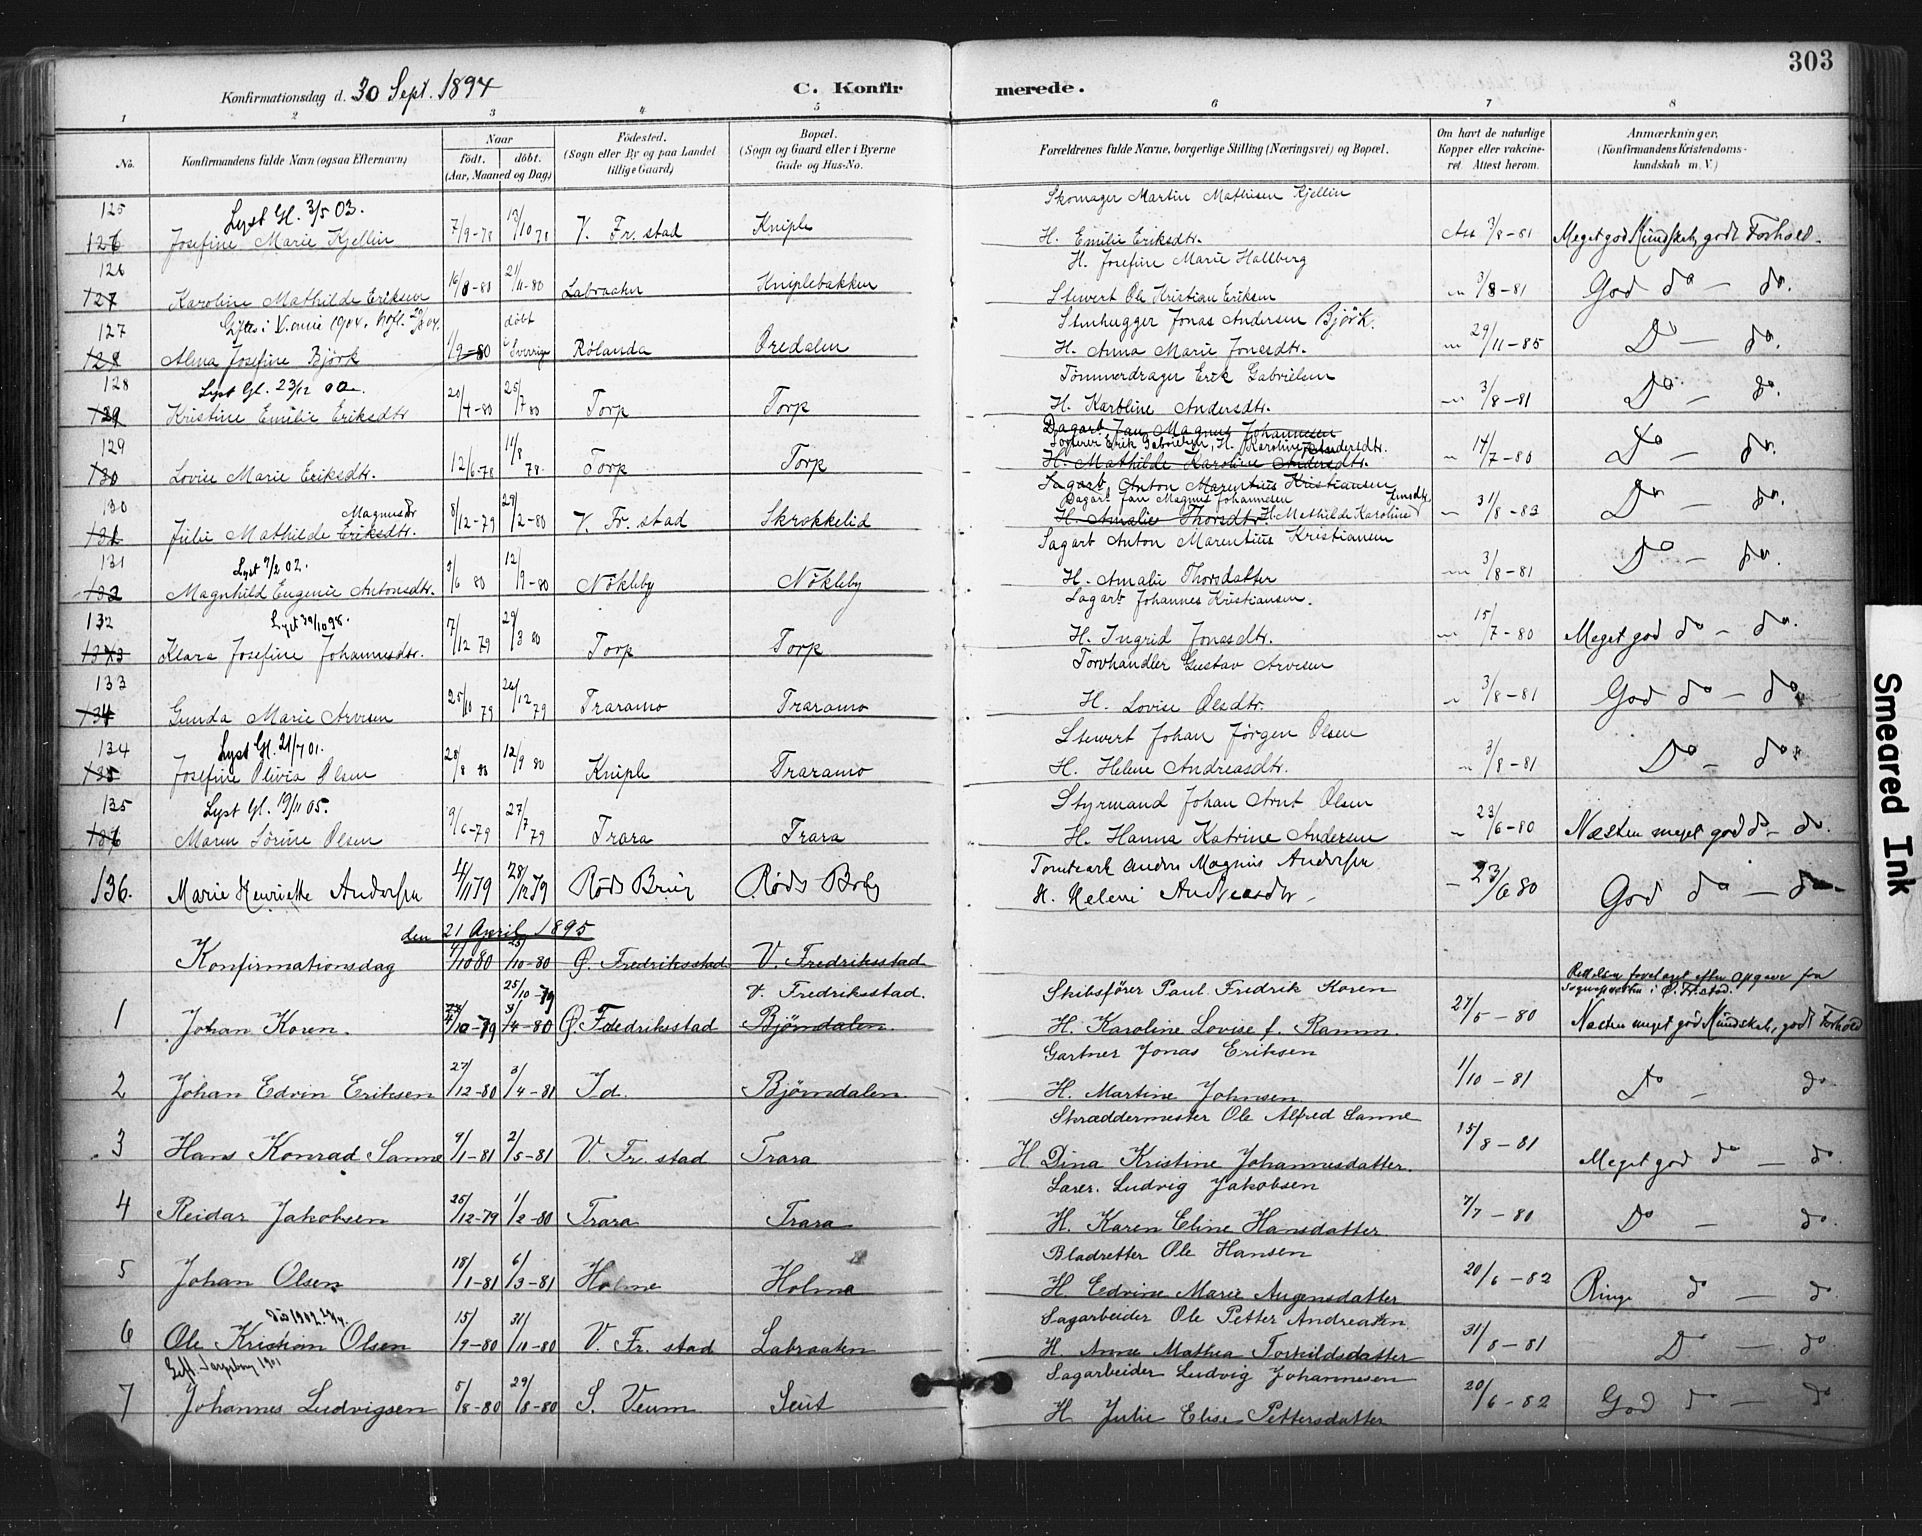 303
Konfirmationsdag d. 30 Sept. 1894 C. Konfirmerede.
1 2 3 4 5 6 7 8
No. Konfirmandens fulde Navn (ogsaa Efternavn) Naar født. døbt. (Aar, Maaned og Dag) Fødested. (Sogn eller By og paa Landet tillige Gaard) Bopæl. (Sogn og Gaard eller i Byerne Gade og Hus-No. Forældrenes fulde Navne, borgerlige Stilling (Næringsvei) og Bopæl. Om havt de naturlige Kopper eller vakcineret. Attest herom. Anmærkninger. (Konfirmandens Kristendomskundskab m. V.)
125 Lyst Gl. 3/5 03. Skomager Martin Mathisen Kjellin
126 Josefine Marie Kjellin 7/9-78 13/10 78 V. Fr. stad Kniple H. Emilie Eriksdtr. Att 3/8-81 Meget god Kundskab, godt Forhold.
126 H. Josefine Marie Hallberg
127 Karoline Mathilde Eriksen 16/8-80 21/11-80 Labraaten Kniplebakken Stewert Ole Kristian Eriksen " 3/8-81 God do - do.
127 Giftes i V. 1904. døbt i Stenhugger Jonas Andersen Bjørk.
128 Alma Josefine Bjørk 1/9-80 Sverrige Rølanda Øredalen H. Anna Marie Jonesdtr. " 29/11-85 Do - do.
128 Lyst Gl. 23/12 00. Tømmerdrager Erik Gabrielsen
129 Kristine Emilie Eriksdtr 20/4-80 25/7 80 Torp Torp H. Karoline Andersdtr. " 3/8-81 Do - do
129 Dagarb Jan Magnus Johannesen
Erik Gabrielsen, H. Karoline Andersdtr.
130 Lovise Marie Eriksdtr. 12/6-78 11/8 78. Torp Torp H. Mathilde Karoline Andersdtr. " 14/7-80 Do - do.
130 Magnusdtr Sagarb. Anton Marentius Kristiansen
Dagarb Jan Magnus Johannesen
131 Julie Mathilde Eriksdtr. 8/12-79 29/2-80 V. Fr. stad Skrokkelid H. Amalie Thorsdtr H. Mathilde Karoline Jensdtr. " 31/8-83 Do - do.
131 Lyst 9/2 02. Sagarb Anton Marentius Kristiansen
132 Magnhild Eugenie Antonsdtr. 3/6 80 12/9-80 Nökleby Nökleby H. Amalie Thorsdatter " 3/8-81 Do - do.
132 Lyst 30/10 98. Sagarb Johannes Kristiansen.
133 Klara Josefine Johannesdtr. 7/12 79 29/3 80 Torp Torp H. Ingrid Jonasdtr. " 15/7-80 Meget god do - do.
133 Torvhandler Gustav Arvesen
134 Gunda Marie Arvesen 25/10 79 26/12 79 Traramo Traramo H. Lovise Olsdtr. " 3/8-81 God do - do
134 Lyst Gl. 21/7 01. Stewert Johan Jørgen Olsen
135 Josefine Olivia Olsen 28/8 80 12/9 80 Kniple Traramo H. Helene Andreasdtr. " 3/8-81 Do - do
135 Lyst Gl. 19/11 05. Styrmand Johan Arnt Olsen
136 Maren Sörine Olsen 9/6-79 27/7 79 Trara Trara H. Hanna Katrine Andersen " 23/6-80 Næsten meget god do - do.
Tomteark Anders Magnus Andersen
136. Marie Henriette Andersen 4/11 79 28/12 79 Røds Brug Røds Brbg H. Helene Andreasdtr - - 23/6 80 God do - do
den 21 April 1895
Konfirmationsdag 4/10 80 25/10-80 Ø. Fredriksstad V. Fredriksstad
25/10-79 V. Fredriksstad. Skibsfører Paul Fredrik Koren Rettelser foretaget efter Opgave fra Sognepresten i Ø. Fr. stad.
1 Johan Koren. 4/10-79 3/4-80 Ø. Fredriksstad Bjørndalen. H. Karoline Lovise f. Ramm. 27/5-80 Næsten meget god Kundskab, godt Forhold
Gartner Jonas Eriksen
2 Johan Edvin Eriksen 27/12-80 3/4-81 Id. Bjørndalen. H. Martine Johnsen 1/10-81 Do - do
Skræddermester Ole Alfred Sanne
3 Hans Konrad Sanne 9/1-81 2/5-81 V. Fr. stad Trara H. Dina Kristine Johannesdatter. 15/8-81 Meget god do - do.
Lærer. Ludvig Jakobsen
4 Reidar Jakobsen 26/12-79 1/2-80 Trara Trara H. Karen Eline Hansdatter 7/7-80 Do - do.
Bladretter Ole Hansen
5 Johan Olsen 18/1-81 6/3-81 Holme Holme H. Edvine Marie Augensdatter 20/6-82 Ringe do - do
Död 1902 Sagarbeider Ole Petter Andreassen.
6 Ole Kristian Olsen 15/9-80 31/10-80 V. Fr. stad Labraaten H. Anne Mathea Torkildsdatter 31/8-81 Do - do
Gift Sarpsborg 1901 Sagarbeider Ludvig Johannesen
7 Johannes Ludvigsen 5/8-80 29/8-80 S. Veum Seut H. Julie Elise Pettersdatter 20/6-82 God do - do
Smeared Ink